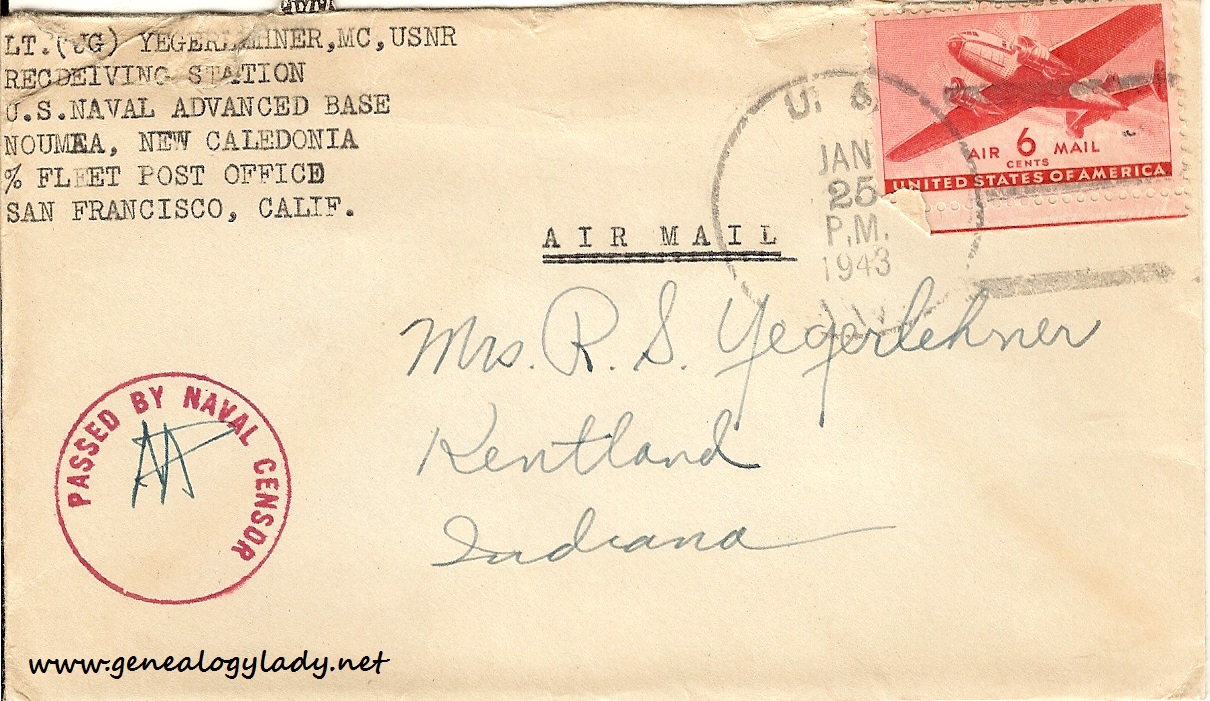 LT.(JG) YEGERLEHNER,MC,USNR
RECDEIVING STATION
U.S.NAVAL ADVANCED BASE
NOUMEA, NEW CALEDONIA
% FLEET POST OFFICE
SAN FRANCISCO, CALIF.
U. S.
JAN
25
P.M.
1943
AIR 6 MAIL
CENTS
UNITED STATES OF AMERICA
AIR MAIL
Mrs. R. S. Yegerlehner
Kentland
Indiana
PASSED BY NAVAL CENSOR
www.genealogylady.net